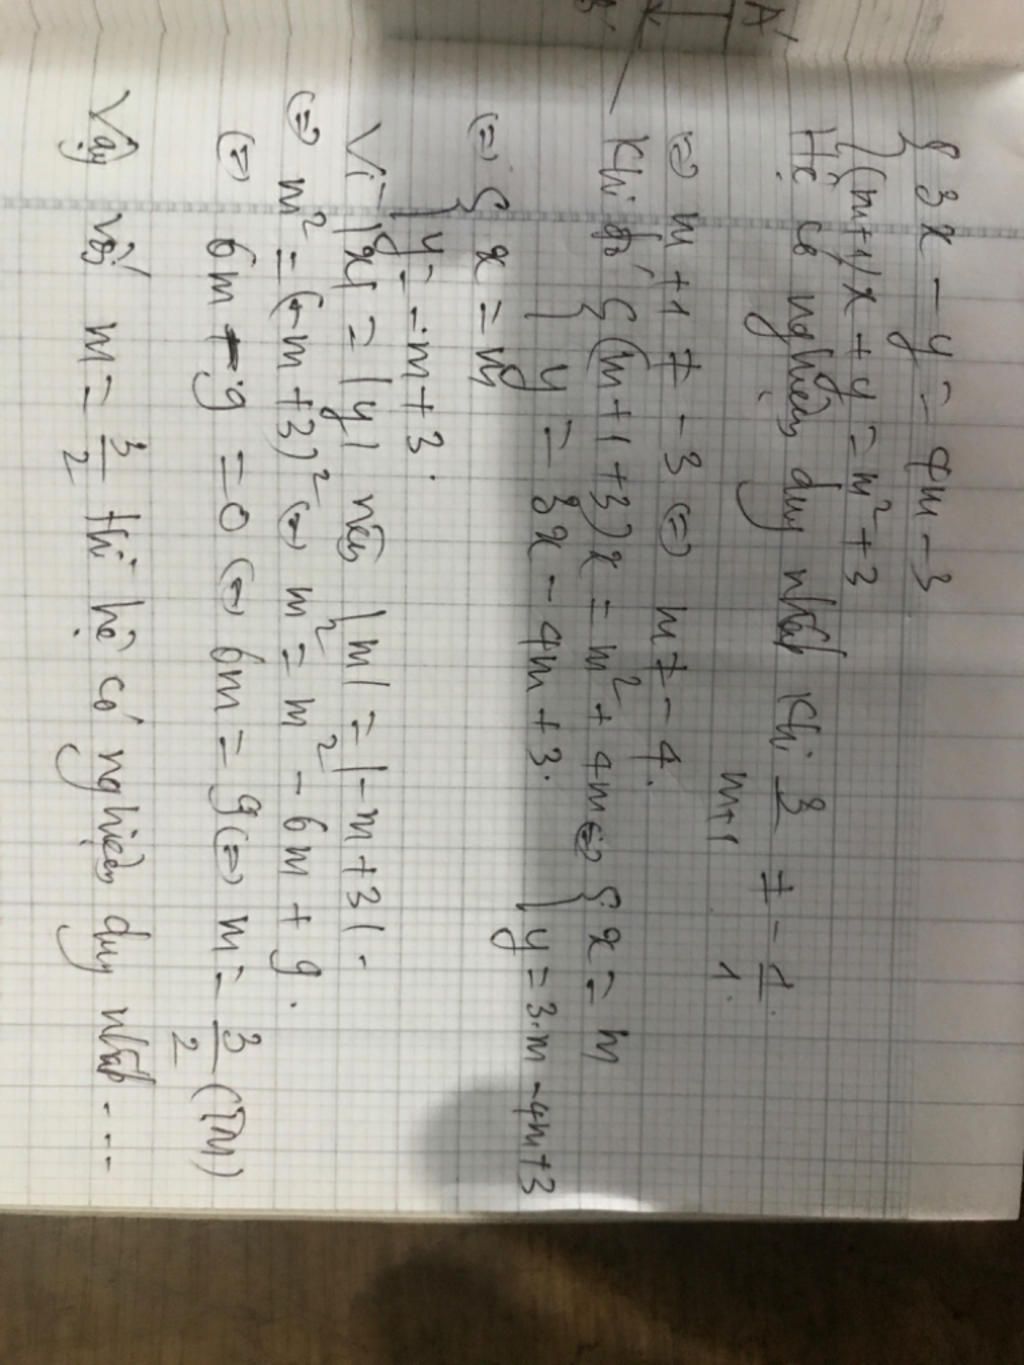 A'
B'
{ 3x - y = 4m - 3
{ (m+1)x + y = m² + 3
Hệ có nghiệm duy nhất khi 3/(m+1) ≠ -1/1.
⇔ m + 1 ≠ -3 ⇔ m ≠ -4.
Khi đó { (m+1+3)x = m² + 4m ⇔ { x = m
{ y = 3x - 4m + 3. { y = 3.m - 4m + 3
⇔ { x = m
{ y = -m + 3.
Vì |x| = |y| nên |m| = |-m+3|.
⇔ m² = (-m+3)² ⇔ m² = m² - 6m + 9.
⇔ 6m - 9 = 0 ⇔ 6m = 9 ⇔ m = 3/2 (TM)
Vậy với m = 3/2 thì hệ có nghiệm duy nhất ...